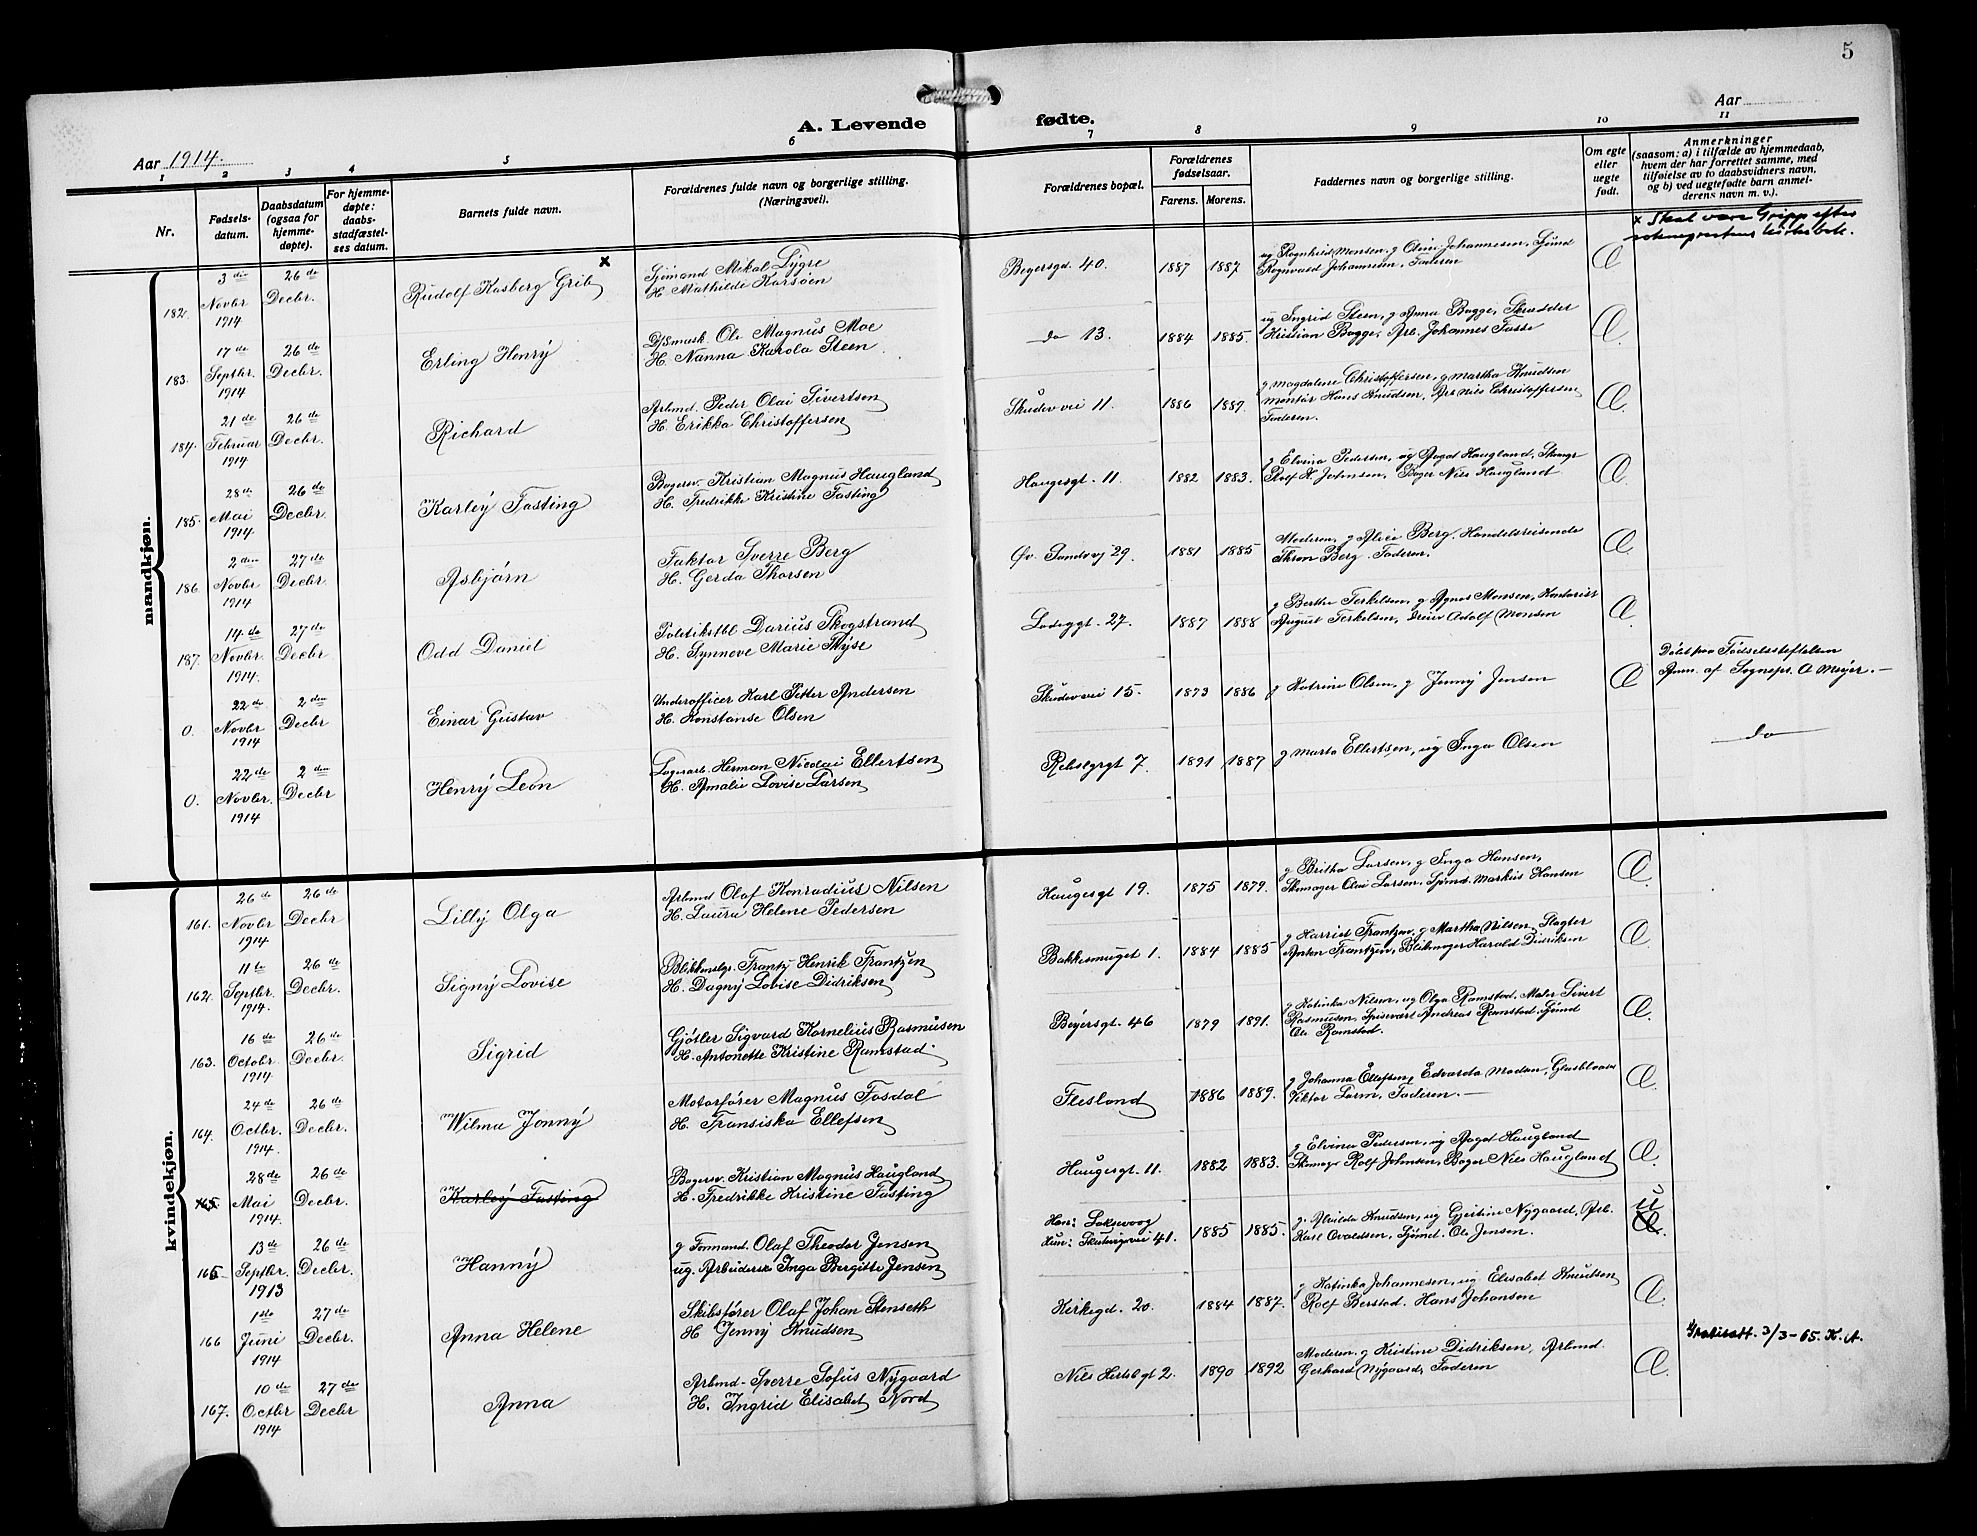 5
A. Levende fødte.
Aar 1914.
Aar
1 2 3 4 5 6 7 8 9 10 11
Nr.
Fødsels-
datum.
Daabsdatum
(ogsaa for
hjemme-
døpte).
For hjemme-
døpte:
daabs-
stadfæstel-
ses datum.
Barnets fulde navn.
Forældrenes fulde navn og borgerlige stilling.
(Næringsvei).
Forældrenes bopæl.
Forældrenes
fødselsaar.
Farens. Morens.
Faddernes navn og borgerlige stilling.
Om egte
eller
uegte
født.
Anmerkninger
(saasom: a) i tilfælde av hjemmedaab,
hvem der har forrettet samme, med
tilføielse av to daabsvidners navn,
og b) ved uegtefødte barn anmel-
derens navn m. v.).
x Skal være Gripp efter
mandkjøn.
182. 3die Novbr 1914 26de Decbr. Rudolf Kasberg Grib x
Sjømand Mikal Lygre
H. Mathilde Karsøen
Beyersgd. 40. 1887 1887
ug Ragnhild Monsen, g Oline Johannesen, Sjømd
Ragnvald Johannesen, Faderen Æ
183. 17de Septbr. 1914 26de Decbr. Erling Henrÿ
D/Smask. Ole Magnus Moe
H. Nanna Karola Steen
do 13. 1884 1885.
ug Ingrid Steen, g Anna Bagge, Skrædder
Kristian Bagge, Arb. Johannes Fasse Æ
184. 21de Februar 1914 26de Decbr. Richard
Arbmd. Peder Olai Sivertsen
H. Erikka Christoffersen
Skudevvei 11. 1886 1889.
g Magdalene Christoffersen, g Martha Knudsen
Montør Hans Knudsen, Arb Nils Christoffersen,
Faderen. Æ
185. 28de Mai 1914 26de Decbr. Karleÿ Fasting
Bagersv. Kristian Magnus Haugland
H. Fredrikke Kristine Fasting
Haugesgt. 11. 1882 1883.
g Elvina Pedersen, ug Aagot Haugland,
Rolf Johnsen, Bager Nils Haugland Æ
186. 2den Novbr 1914 27de Decbr. Asbjørn
Faktor Sverre Berg
H. Gerda Thorsen
Øv Sandvvj 29. 1881 1885
Moderen, g Alice Berg, Handelsreisende
Thron Berg. Faderen. Æ
187. 14de Novbr. 1914. 27de Decbr Odd Daniel
Politikstbl Darius Skogstrand
H. Synneve Marie Thÿse
Ladeggt. 27. 1887 1888
g Berthe Terkelsen, g Agnes Monsen, Kontorist
August Terkelsen, Adolf Monsen Æ
0. 22de Novbr 1914 2den Decbr Einar Gustav
Underofficer Karl Petter Andersen
H. Konstanse Olsen
Skudevvei 15. 1873 1886
g Katrine Olsen, g Jennÿ Jensen Æ
Døbt paa Fødselsstiftelsen
Anm. af Sognepr. A Meÿer.
0. 22de Novbr. 1914 2den Decbr Henrÿ Leon
Lagerarb. Herman Nicolai Ellertsen
H. Amalie Lovise Larsen
Rebslgrgt 7. 1891 1887
g Marta Ellertsen, ug Inga Olsen
do
kvindekjøn.
161. 26de Novbr 1914 26de Decbr Lillÿ Olga
Arbmd Olaf Konradius Nilsen
H. Laura Helene Pedersen
Haugesgt 19. 1875 1879.
g Britha Larsen, g Inga Hansen,
Skomager Olai Larsen, Sjømd. Markus Hansen Æ
162. 11te Septbr. 1914. 26de Decbr. Signÿ Lovise
Blikkenslgr. Frantz Henrik Frantzen
H. Dagnÿ Lovise Didriksen
Bakkesmuget 1. 1884 1885
g Harriet Frantzen, g Martha Nilsen, Slagter
Anton Frantzen, Blikmager Harald Didriksen Æ
163. 16de Octobr. 1914 26de Decbr. Sigrid
Gjøtler Sigvard Kornelius Rasmusen
H. Antonette Kristine Ramstad.
Beÿersgt. 46 1879 1891.
g Katinka Nilsen, ug Olga Ramstad, Maler Sivert
Rasmusen, Spisevært Andreas Ramstad, Sjømd
Ole Ramstad. Æ
164. 24de Octbr. 1914. 26de Decbr. Wilma Jonnÿ
Motorfører Magnus Fosdal
H. Fransiska Ellefsen
Flesland 1886 1889.
g Johanna Ellefsen, Edvarda Madsen, Glasblaaser
Viktor Larm, Faderen. Æ
165. 28de Mai 1914. 26de Decbr. Karleÿ Fasting
Bagersv. Kristian Magnus Haugland
H. Fredrikke Kristine Fasting
Haugesgt. 11. 1882 1883.
g Elvina Pedersen, ug Aagot Haugland
Skomag Rolf Johnsen, Bager Nils Haugland Æ
165 13de Septbr. 1913 26de Decbr. Hannÿ
g Formand. Olaf Theodor Jensen
ug. Arbeiderske Inga Bergitte Jensen
Han: Laksevaag
Hun: Skutevigsvei 41. 1885 1885.
g. Alvilda Knudsen, ug Gjertine Nÿgaard, Arb.
Karl Osvaldsen, Sjømd. Ole Jensen. u Æ
166 1ste Juni 1914 27de Decbr. Anna Helene
Skibsfører Olaf Johan Stenseth
H Jennÿ Knudsen
Kirkegd. 20. 1884 1887.
g Katinka Johannesen, ug Elisabet Knudsen
Rolf Berstad. Hans Johansen Æ
167. 10de Octbr 1914 27de Decbr Anna
Arbmd. Sverre Sofus Nÿgaard
H. Ingrid Elisabet Nord
Nils Hertzbgt 2. 1890 1892
Moderen, g Kristine Didriksen, Arbmd.
Gerhard Nÿgaard, Faderen Æ
3/3-65. K. A.